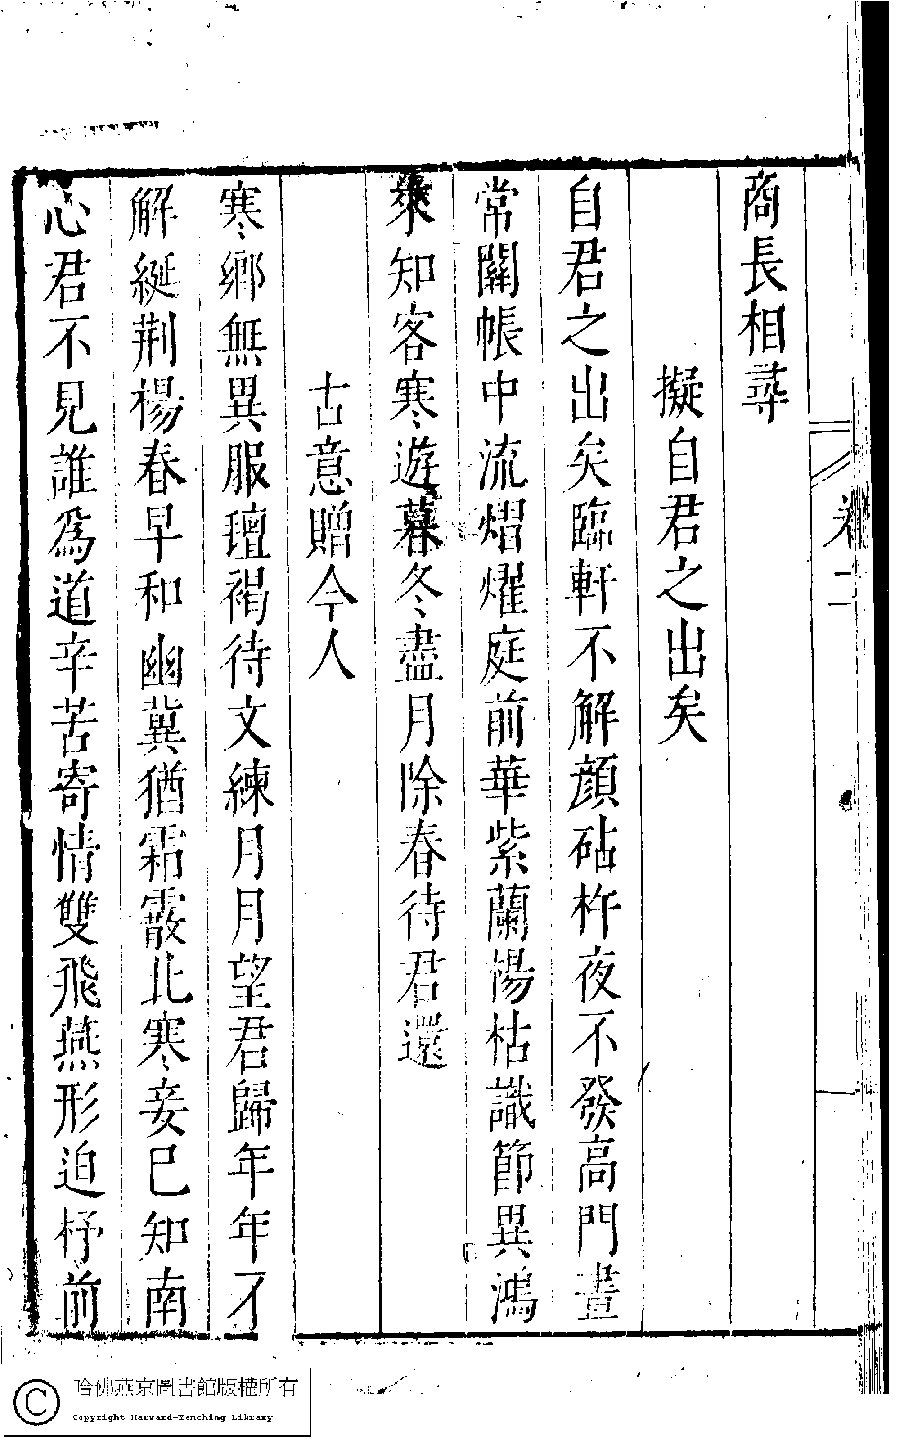 卷二
商長相尋
擬自君之出矣
自君之出矣臨軒不解顔砧杵夜不發高門晝
常關帳中流熠燿庭前華紫蘭楊枯識節異鴻
來知客寒遊暮冬盡月除春待君還
古意贈今人
寒鄉無異服氊褐待文練月月望君歸年年不
解綖荆楊春早和幽冀猶霜霰北寒妾已知南
心君不見誰爲道辛苦寄情雙飛燕形迫杼前
哈佛燕京圖書館版權所有
Copyright Harvard-Yenching Library